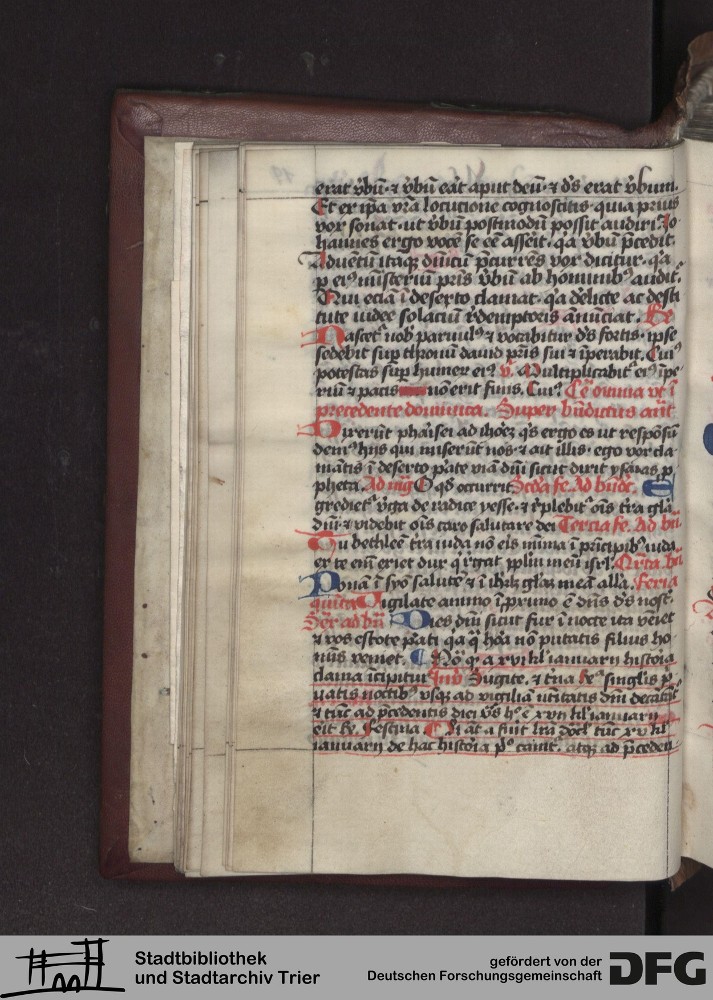 erat v̄bū· ⁊ v̄bū eāt aput deū· ⁊ d̄s erat v̄bum.
Et ex ip̄a vr̄a locucione cognoscitis· quia prius
vox sonat· ut v̄bū postmodū possit audiri Jo
hannes ergo vocē se eē asseīt· qa v̄bū p̄cedit.
Aduentū itaqꝫ dn̄icū p̄currēs vox dicitur· qa
ꝑ eiꝰ mīsteriū pr̄is v̄bū ab hominibꝰ audit᷑
Qui eciā ī deserto clamat· qa delicte ac desti
tute iudee solaciū redemptoris an̄unciat. Rx
Nascet᷑ nob̄ paruulꝰ ⁊ vocabitur d̄s fortis· ipse
sedebit suꝑ thronū dauid pr̄is sui ⁊ īperabit. Cuiꝰ
potestas suꝑ humer eiꝰ v̄. Multiplicabit᷑ eiꝰ īpe
riū ⁊ pacis nō erit finis. Cuiꝰ Cet̄ omnia vt ī
precedente dominica. Super bn̄dictus ant̄
Dixerūt phaisei ad ioh̄ez q̄s ergo es ut respōsū
demꝰ hijs qui miserūt nos· ⁊ ait illis· ego vox cla
mātis ī deserto ꝑate viā dn̄i sicut dixit ysayas ꝓ
pheta. Ad mg̅ O q̄d occurrit Scd̄a fe. Ad bn̄dc̄. E
gredietᷣ v̄ga de radice yesse· ⁊ r̄plebitᷣ oīs t̄ra glā
dn̄i· ⁊ videbit oīs caro salutare dei Tercia fe. Ad bn̄
Tu bethleē t̄ra iuda nō eis mīma ī pͥncipibꝰ iuda
ex te em̄ exiet dux q̄ r̄gat pplm̄ meū isrl̄. Qr̄ta bn̄
Ponā ī syō salutē ⁊ ī ihrl̄ glām meā alla. Feria
quīta Vigilate animo ī ꝓximo ē dn̄s d̄s nost᷑.
Sex̄ ad bn̄ Dies dn̄i sicut fur ī nocte ita veīet
⁊ vos estote ꝑati qa q̄ hōa nō putatis filius ho
mīs veniet. Nō q̄ a xvi kl̄ ianuarij historia
clama īcipitur Inv̄ Surgite. ⁊ t̄na Rx singlis p̄
uatis noctibꝰ vsqꝫ ad vigiliā dn̄i
⁊ tūc ad p̄cedentis diei v̄s xvii kl̄ ianuarij
eit Rx. Festina Si āt a fuīt lr̄a tūc xv kl̄
ianuarij de hac histōia pͦ canit᷑. atqꝫ ad p̄ceden
Stadtbibliothek
und Stadtarchiv Trier
gefördert von der
Deutschen Forschungsgemeinschaft
DFG